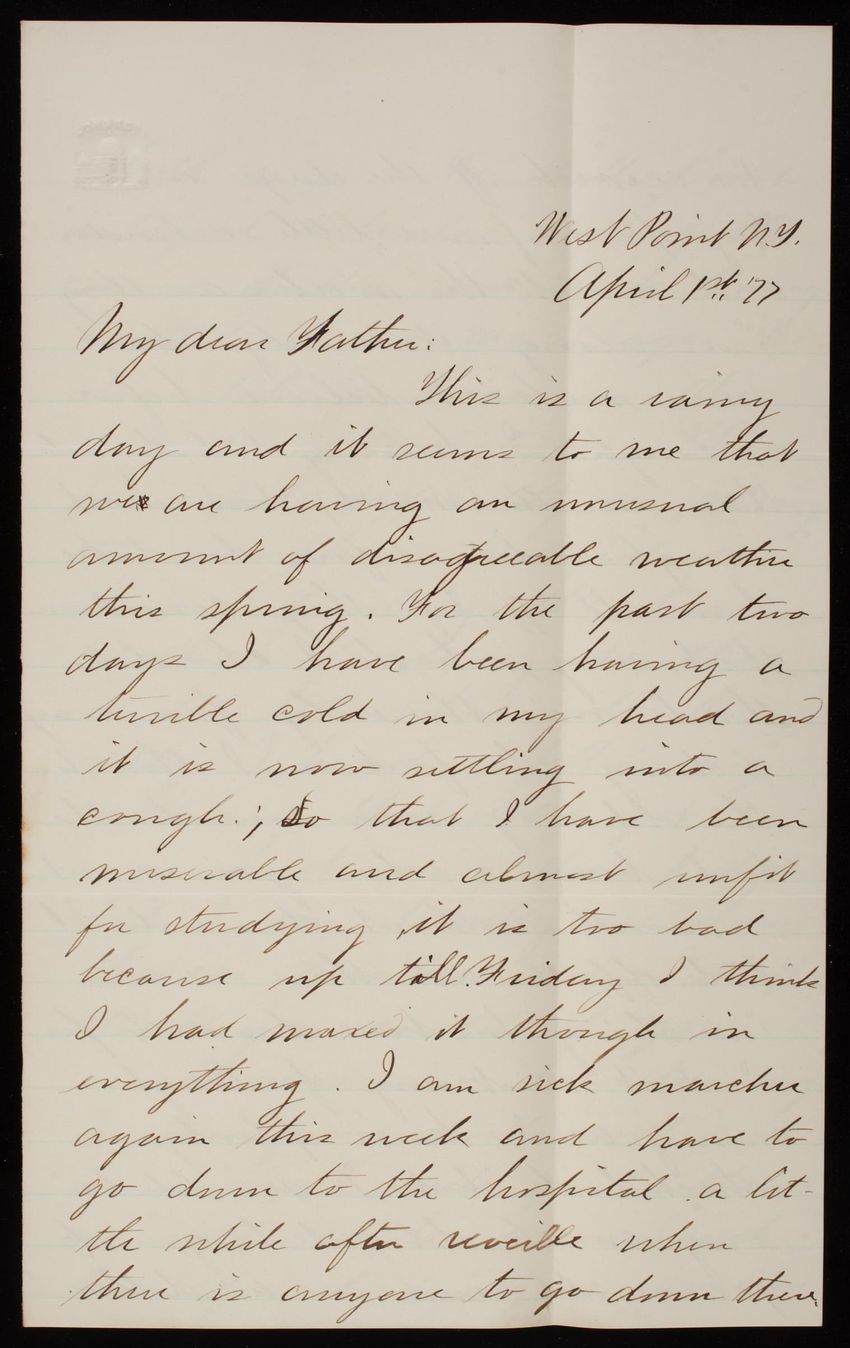 West Point N.Y.
April 1st '77
My dear Father:
This is a rainy
day and it seems to me that
we are having an unusual
amount of disagreeable weather
this spring. For the past two
days I have been having a
terrible cold in my head and
it is now settling into a
cough; So that I have been
miserable and almost unfit
for studying, it is too bad
because up till Friday I think
I had maxed it though in
everything. I am sick marcher
again this week and have to
go down to the hospital a lit-
tle while after reveille when
there is anyone to go down there.